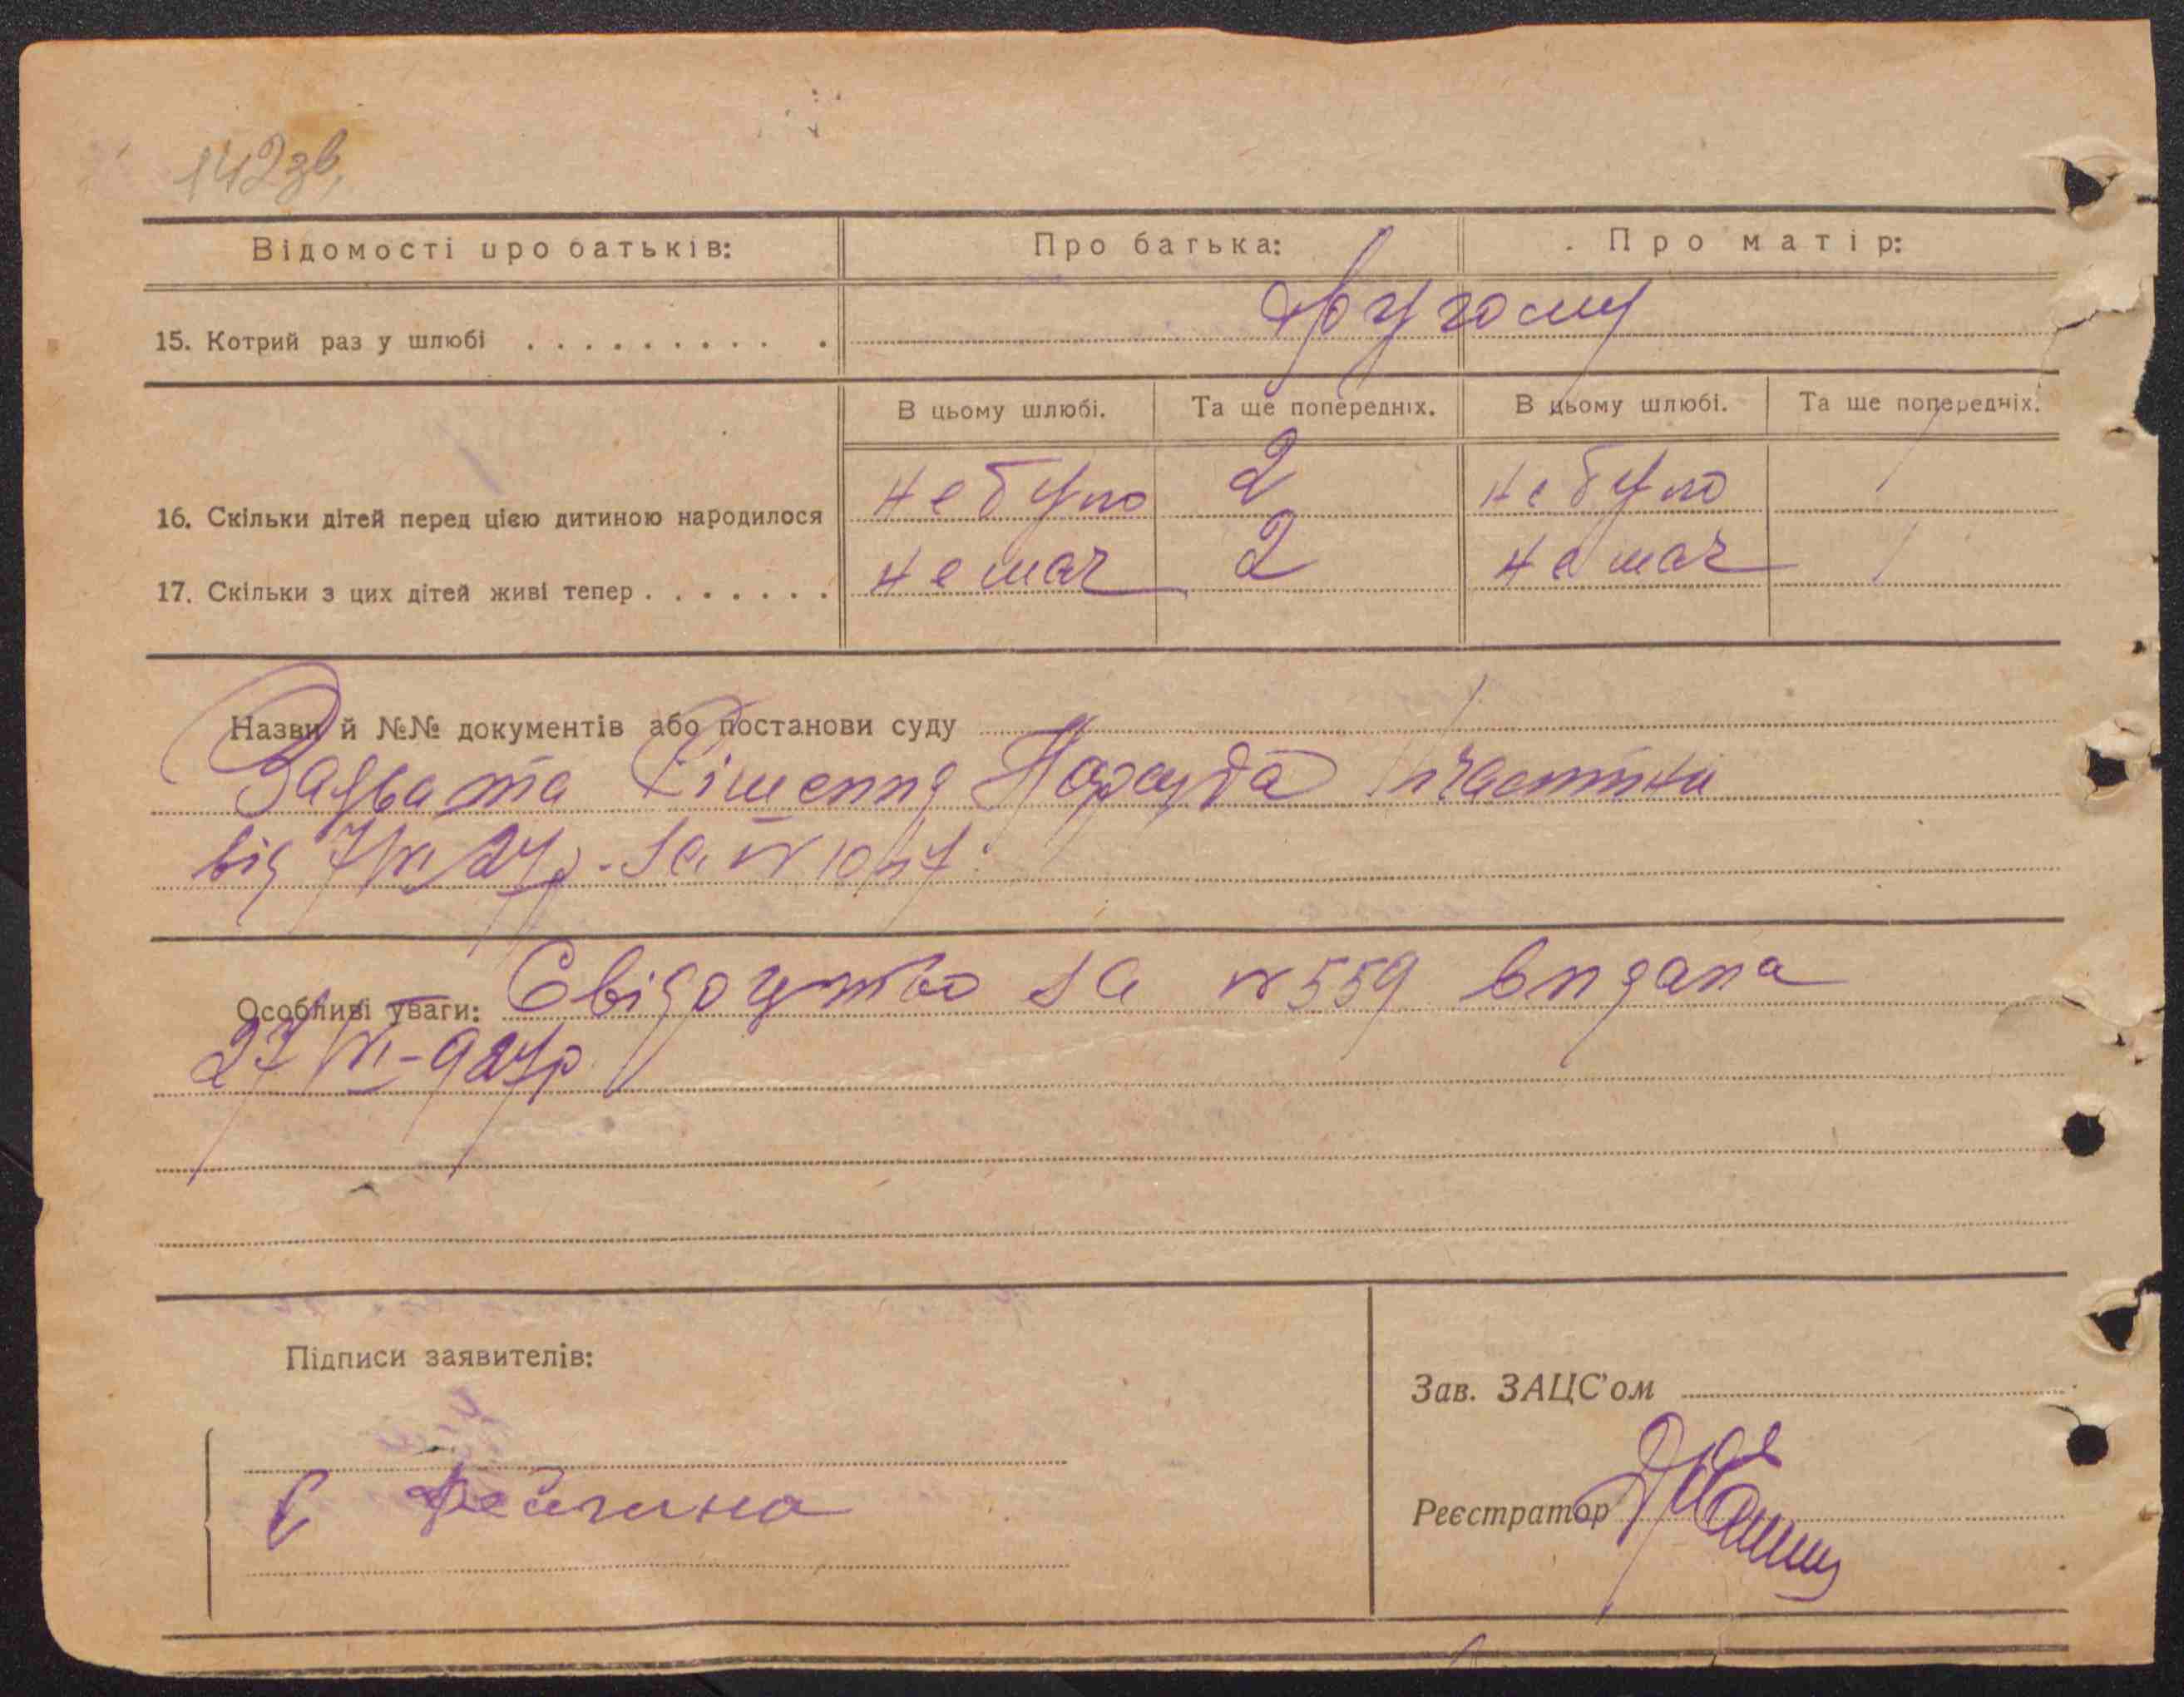 142зв,
Відомості про батьків: Про батька: Про матір:
15. Котрий раз у шлюбі . . . . . . . . . . другому
В цьому шлюбі. Та ще попередніх. В цьому шлюбі. Та ще попередніх.
16. Скільки дітей перед цією дитиною народилося не було 2 не було /
17. Скільки з цих дітей живі тепер . . . . . . . немає 2 немає /
Назви й №№ документів або постанови суду
Заява та Рішення Нарсуда
від 7/XI 27р. за №
Особливі уваги: Свідоцтво за №559 видана
27/XI-927р
Підписи заявителів:
Зав. ЗАЦС’ом
Реєстратор